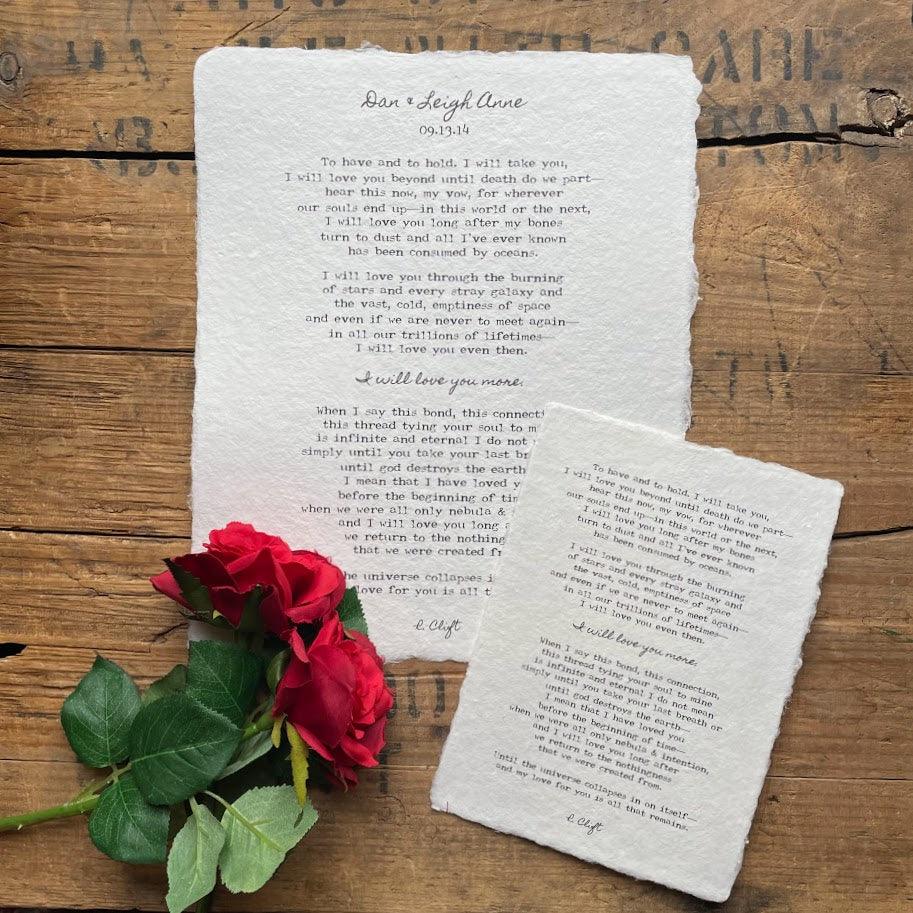 Dan & Leigh Anne
09.13.14
To have and to hold. I will take you,
I will love you beyond until death do we part—
hear this now, my vow, for wherever
our souls end up—in this world or the next,
I will love you long after my bones
turn to dust and all I've ever known
has been consumed by oceans.
I will love you through the burning
of stars and every stray galaxy and
the vast, cold, emptiness of space
and even if we are never to meet again—
in all our trillions of lifetimes—
I will love you even then.
I will love you more.
When I say this bond, this connecti
this thread tying your soul to m
is infinite and eternal I do not
simply until you take your last br
until god destroys the earth
I mean that I have loved y
before the beginning of tim
when we were all only nebula &
and I will love you long a
we return to the nothing
that we were created fr
he universe collapses i
love for you is all t
R. Clift
To have and to hold. I will take you,
I will love you beyond until death do we part—
hear this now, my vow, for wherever
our souls end up—in this world or the next,
I will love you long after my bones
turn to dust and all I've ever known
has been consumed by oceans.
I will love you through the burning
of stars and every stray galaxy and
the vast, cold, emptiness of space
and even if we are never to meet again—
in all our trillions of lifetimes—
I will love you even then.
I will love you more.
When I say this bond, this connection,
this thread tying your soul to mine
is infinite and eternal I do not mean
simply until you take your last breath or
until god destroys the earth—
I mean that I have loved you
before the beginning of time—
when we were all only nebula & intention,
and I will love you long after
we return to the nothingness
that we were created from.
Until the universe collapses in on itself—
and my love for you is all that remains.
R. Clift